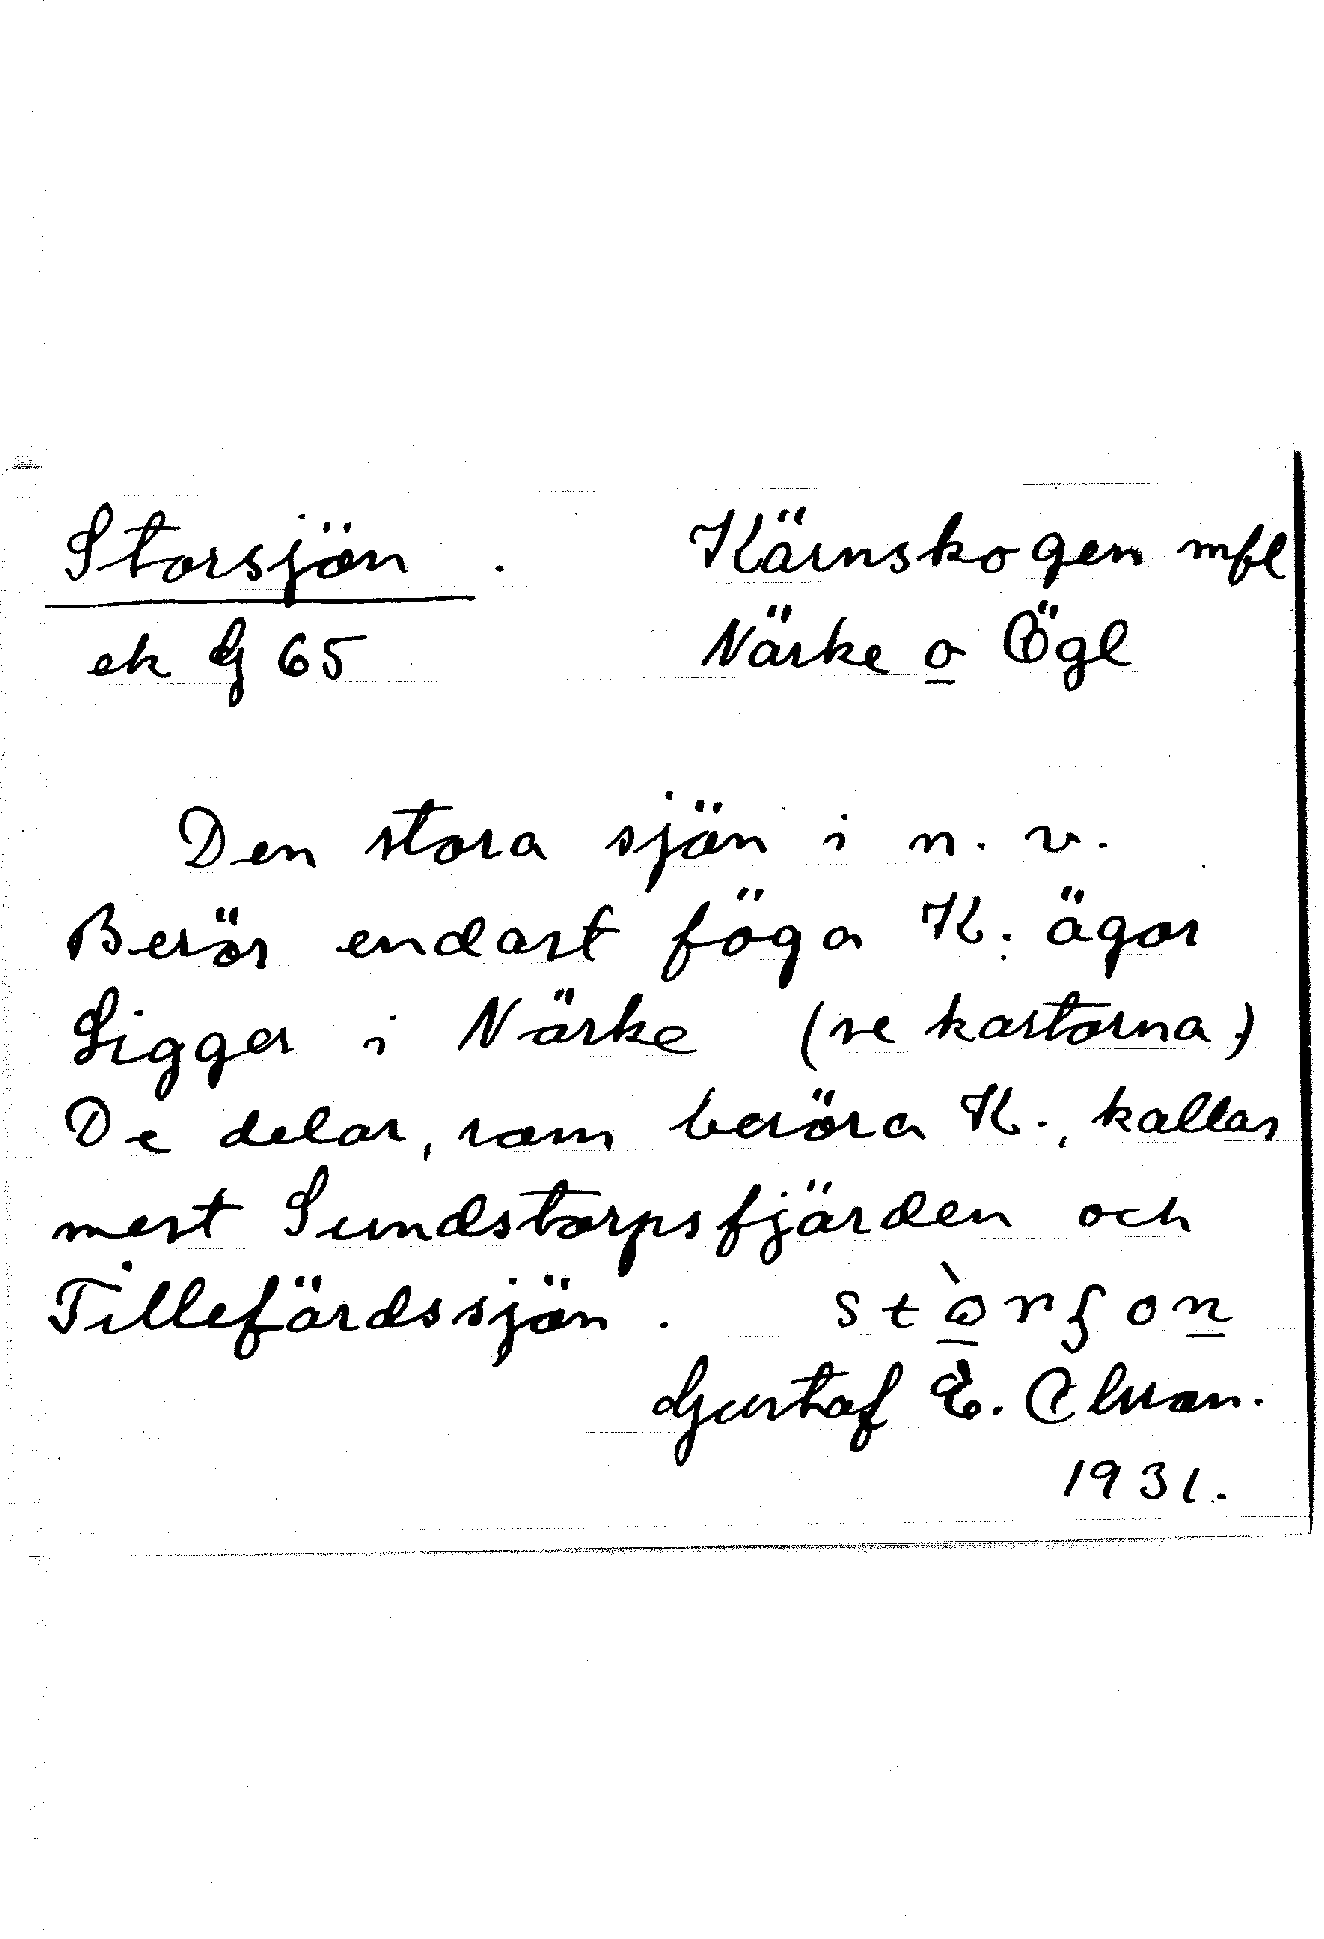 Storsjön . Kärnskogen mfl
ek G 65 Närke o Ögl
Den stora sjön i n. v.
Berör endast föga K: ägor
Ligger i Närke (se kartorna)
De delar, som beröra K., kallas
mest Sundstorpsfjärden och
Tillefärdssjön . stòrʃon
Gustaf E. Clman.
1931.